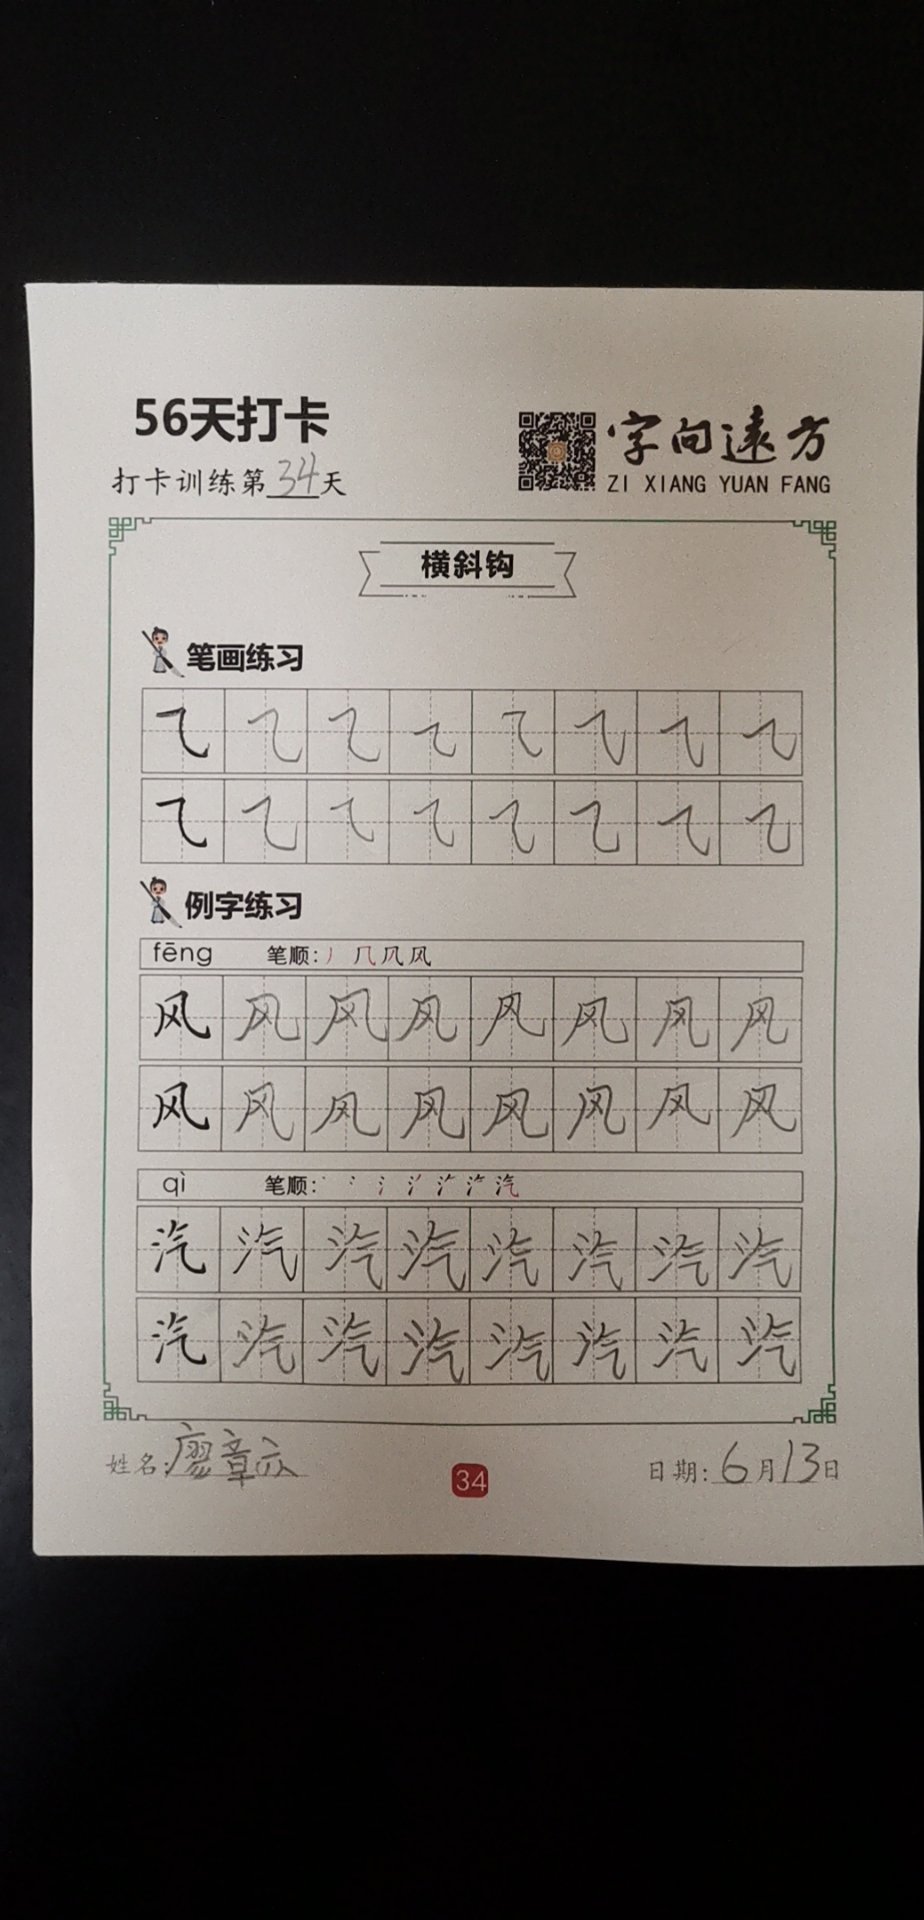 56天打卡
打卡训练第34天
字向遠方
ZI XIANG YUAN FANG
横斜钩
笔画练习
⺄ ⺄ ⺄ ⺄ ⺄ ⺄ ⺄ ⺄
⺄ ⺄ ⺄ ⺄ ⺄ ⺄ ⺄ ⺄
例字练习
fēng 笔顺: 丿 几 凡 风
风 风 风 风 风 风 风 风
风 风 风 风 风 风 风 风
qì 笔顺:
汽 汽 汽 汽 汽 汽 汽 汽
汽 汽 汽 汽 汽 汽 汽 汽
姓名:廖章
34
日期:6月13日